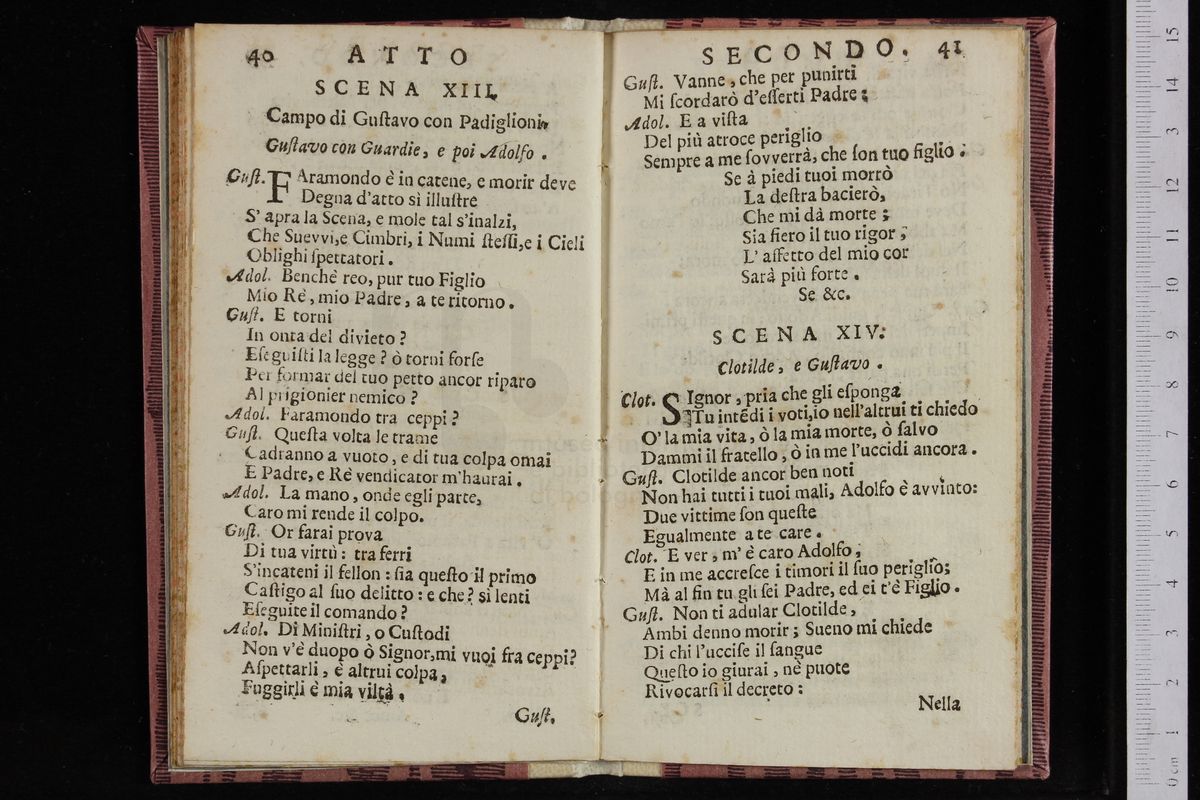 40 ATTO
SCENA XIII.
Campo di Guſtavo con Padiglioni.
Guſtavo con Guardie, e poi Adolfo.
Guſt. FAramondo è in catene, e morir deve
Degna d'atto sì illuſtre
S' apra la Scena, e mole tal s'inalzi,
Che Suevvi,e Cimbri, i Numi ſteſſi,e i Cieli
Oblighi ſpettatori.
Adol. Benchè reo, pur tuo Figlio
Mio Rè, mio Padre, a te ritorno.
Guſt. E torni
In onta del divieto?
Eſeguiſti la legge? ò torni forſe
Per formar del tuo petto ancor riparo
Al prigionier nemico?
Adol. Faramondo tra ceppi?
Guſt. Queſta volta le trame
Cadranno a vuoto, e di tua colpa omai
E Padre, e Rè vendicator m'haurai.
Adol. La mano, onde egli parte,
Caro mi rende il colpo.
Guſt. Or farai prova
Di tua virtù: tra ferri
S'incateni il fellon: ſia queſto il primo
Caſtigo al ſuo delitto: e che? si lenti
Eſeguite il comando?
Adol. Dì Miniſtri, o Cuſtodi
Non v'è duopo ò Signor,mi vuoi fra ceppi?
Aſpettarli, è altrui colpa,
Fuggirli è mia viltà.
Guſt.
SECONDO. 41
Guſt. Vanne, che per punirti
Mi ſcordarò d'eſſerti Padre;
Adol. E a viſta
Del più atroce periglio
Sempre a me ſovverrà, che ſon tuo figlio.
Se à piedi tuoi morrò
La deſtra bacierò,
Che mi dà morte;
Sia fiero il tuo rigor;
L' affetto del mio cor
Sarà più forte.
Se &c.
SCENA XIV.
Clotilde, e Guſtavo.
Clot. SIgnor, pria che gli eſponga
Tu intẽdi i voti,io nell'altrui ti chiedo
O' la mia vita, ò la mia morte, ò ſalvo
Dammi il fratello, ò in me l'uccidi ancora.
Guſt. Clotilde ancor ben noti
Non hai tutti i tuoi mali, Adolfo è avvinto:
Due vittime ſon queſte
Egualmente a te care.
Clot. E ver, m' è caro Adolfo,
E in me accreſce i timori il ſuo periglio;
Mà al fin tu gli ſei Padre, ed ei t'è Figlio.
Guſt. Non ti adular Clotilde,
Ambi denno morir; Sueno mi chiede
Di chi l'ucciſe il ſangue
Queſto io giurai, nè puote
Rivocarſi il decreto:
Nella
15
14
13
12
11
10
9
8
7
6
5
4
3
2
1
0 cm